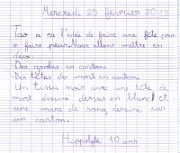 Mercredi 25 février 2015
Tao a eu l'idée de faire une fête pour
se faire peur. Nous allons mettre en
deco:
Des gardes en carton
Des têtes de mort en carton
Un tissu noir avec une tête de
mort dessiné dessus en blanc et
une mare de sang dessiné sur
un carton.
Hippolyte 10 ans